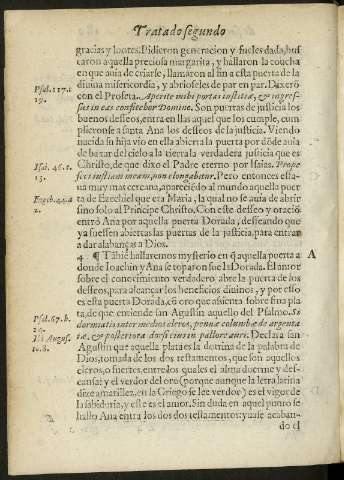 Tratado segundo
gracias y loores. Pidieron generacion y fueles dada, bus
caron aquella preciosa margarita, y hallaron la concha
en que auia de criarse, llamaron al fin a esta puerta de la
diuina misericordia, y abrioseles de par en par. Dixerõ
Psal. 117. c.
19.
con el Profeta. Aperite mihi portas iustitiæ, & ingres-
sus in eas confitebor Domino. Son puertas de justicia los
buenos desseos, entra en llas aquel que los cumple, cum
plieronse a santa Ana los desseos de la justicia. Viendo
nacida su hija vio en ella abierta la puerta por dõde auia
de baxar del cielo a la tierra la verdadera justicia que es
Isai. 46. c.
13.
Christo, de que dixo el Padre eterno por Isaias. Prope
feci iustitiam meam, non elongabitur. Pero entonces esta-
ua muy mas cercana, apareciẽdo al mundo aquella puer
Ezech. 44. a
2.
ta de Ezechiel que era Maria, la qual no se auia de abrir
sino solo al Principe Christo. Con este desseo y oracio
entrò Ana por aquella puerta Dorada, desseando que
ya fuessen abiertas las puertas de la justicia, para entrar
a dar alabanças a Dios.
4 ¶ Tãbiẽ hallaremos mysterio en q̃ aquella puerta a
A
donde Ioachin y Ana se toparon fue la Dorada. El amor
sobre el conocimiento verdadero abre la puerta de los
desseos, para alcançar los beneficios diuinos, y por esso
es esta puerta Dorada, cõ oro que assienta sobre fina pla
Psal. 67. b.
14.
ta, de que entiende san Agustin aquello del Psalmo. Si
dormiatis inter medios cleros, pennæ columbæ de argenta
Ibi August.
to. 8.
tæ, & posteriora dorsi eius in pallore auri. Declara san
Agustin que aquella plata es la dotrina de la palabra de
Dios, tomada de los dos testamentos, que son aquellos
cleros, o suertes, entre los quales el alma duerme y des-
cansa: y el verdor del oro (porque aunque la letra latina
dize amarillez, en la Griego se lee verdor) es el vigor de
la sabiduria, y este es el amor. Sin duda en aquel punto se
hallo Ana entre los dos testamentos: yua se acaban-
do el